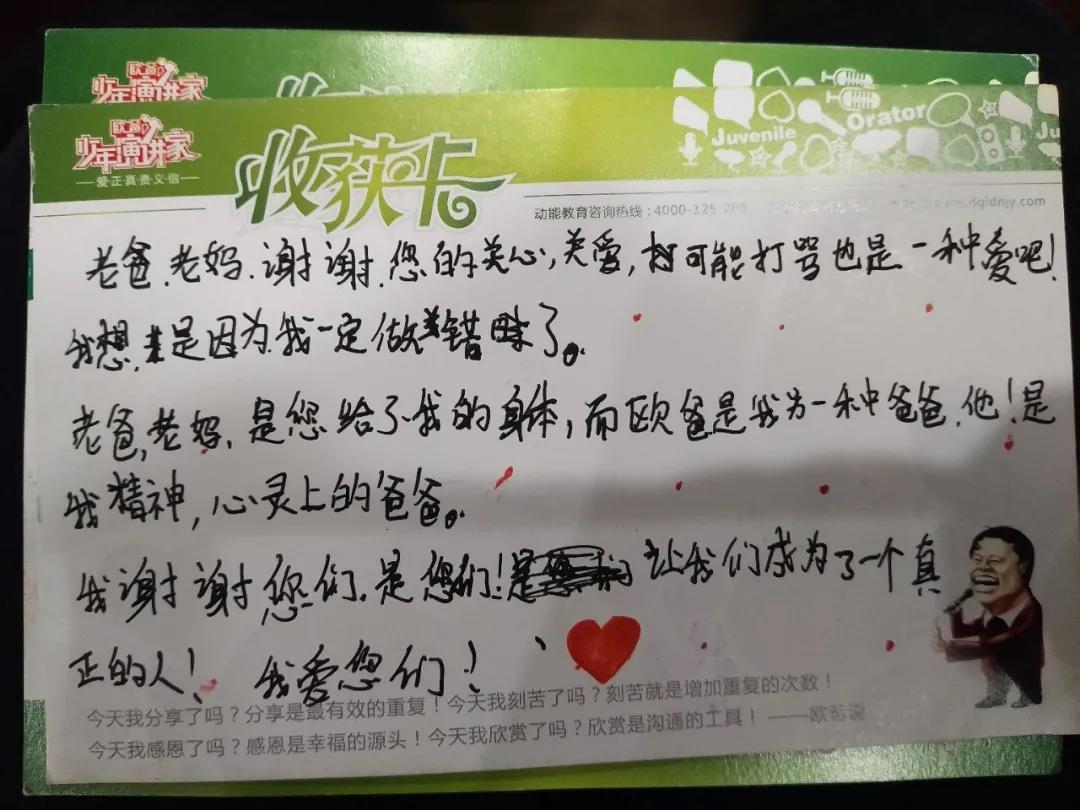 少年演讲家
欧爸
少年演讲家
—爱·正·真·责·义·信—
收获卡
Juvenile
Orator
Ju
动能教育咨询热线:4000-125-288
老爸.老妈.谢谢.您的关心,关爱,可能打骂也是一种爱吧!
我想.是因为.我一定做错了。
老爸,老妈.是您给了我的身体,而欧爸是我另一种爸爸.他!是
我精神,心灵上的爸爸。
我谢谢您们.是您们!让我们成为了一个真
正的人! 我爱您们!
今天我分享了吗?分享是最有效的重复!今天我刻苦了吗?刻苦就是增加重复的次数!
今天我感恩了吗?感恩是幸福的源头!今天我欣赏了吗?欣赏是沟通的工具! ——欧爸说